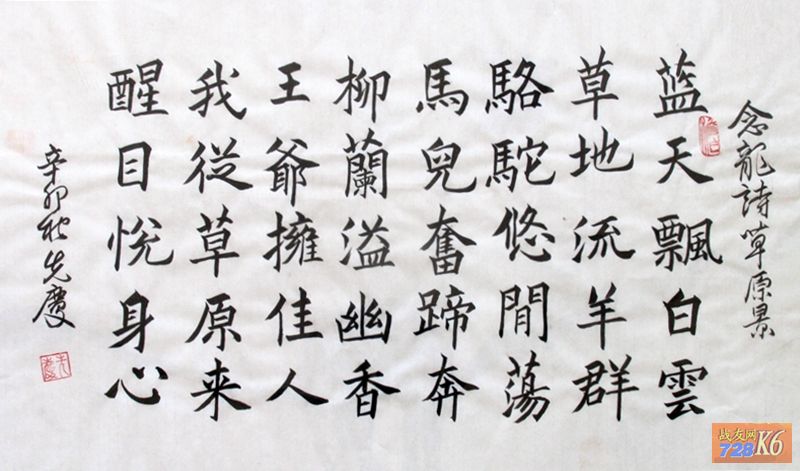 念龍詩草原景
藍天飄白雲
草地流羊群
駱駝悠閒蕩
馬兒奮蹄奔
柳蘭溢幽香
王爺擁佳人
我從草原来
醒目悦身心
辛卯秋先慶
战友网
728K6